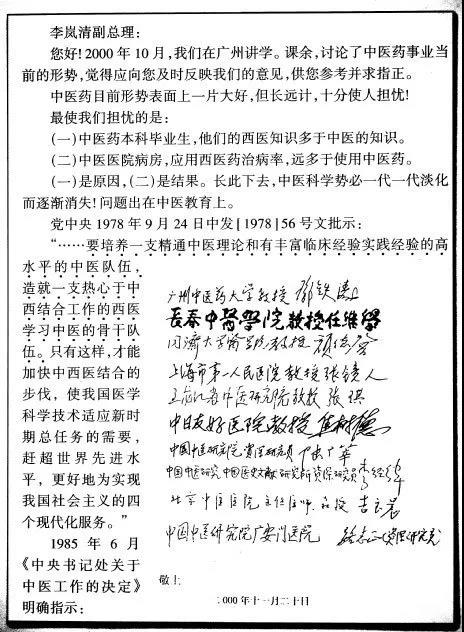 李岚清副总理：
您好！2000年10月，我们在广州讲学。课余，讨论了中医药事业当
前的形势，觉得应向您及时反映我们的意见，供您参考并求指正。
中医药目前形势表面上一片大好，但长远计，十分使人担忧！
最使我们担忧的是：
(一)中医药本科毕业生，他们的西医知识多于中医的知识。
(二)中医医院病房，应用西医药治病率，远多于使用中医药。
(一)是原因，(二)是结果。长此下去，中医科学势必一代一代淡化
而逐渐消失！问题出在中医教育上。
党中央1978年9月24日中发[1978]56号文批示：
“……要培养一支精通中医理论和有丰富临床经验实践经验的高
水平的中医队伍，
造就一支热心于中
西结合工作的西医
学习中医的骨干队
伍。只有这样，才能
加快中西医结合的
步伐，使我国医学
科学技术适应新时
期总任务的需要，
赶超世界先进水
平，更好地为实现
我国社会主义的四
个现代化服务。”
1985年6月
《中央书记处关于
中医工作的决定》
明确指示：
广州中医药大学教授 邓铁涛
長春中醫學院教授任继學
同济大学医学院教授 颜德馨
上海市第一人民医院教授张镜人
中医研究院教授 张琪
中日友好医院教授焦树德
中国中医研究院资深研究员
中国中医研究院中国医史文献研究所资深研究员 李经纬
北京中医医院主任医师、教授 吉良晨
中国中医研究院广安门医院 资深研究员
敬上
2000年十一月二十日